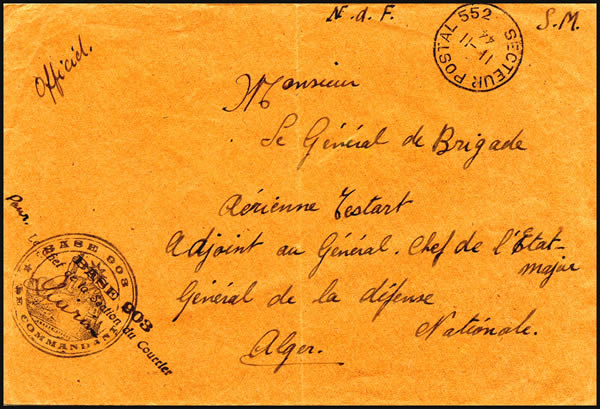 N. d. F.
S.M.
Officiel.
SECTEUR POSTAL 552
11-11
44
Monsieur
Le Général de Brigade
Aérienne Testart
Adjoint au Général. Chef de l'Etat-
major
Général de la défense
Nationale.
Alger.
Pour. Le Chef de la Section du Courrier
BASE 903
BASE 903
LE COMMANDANT